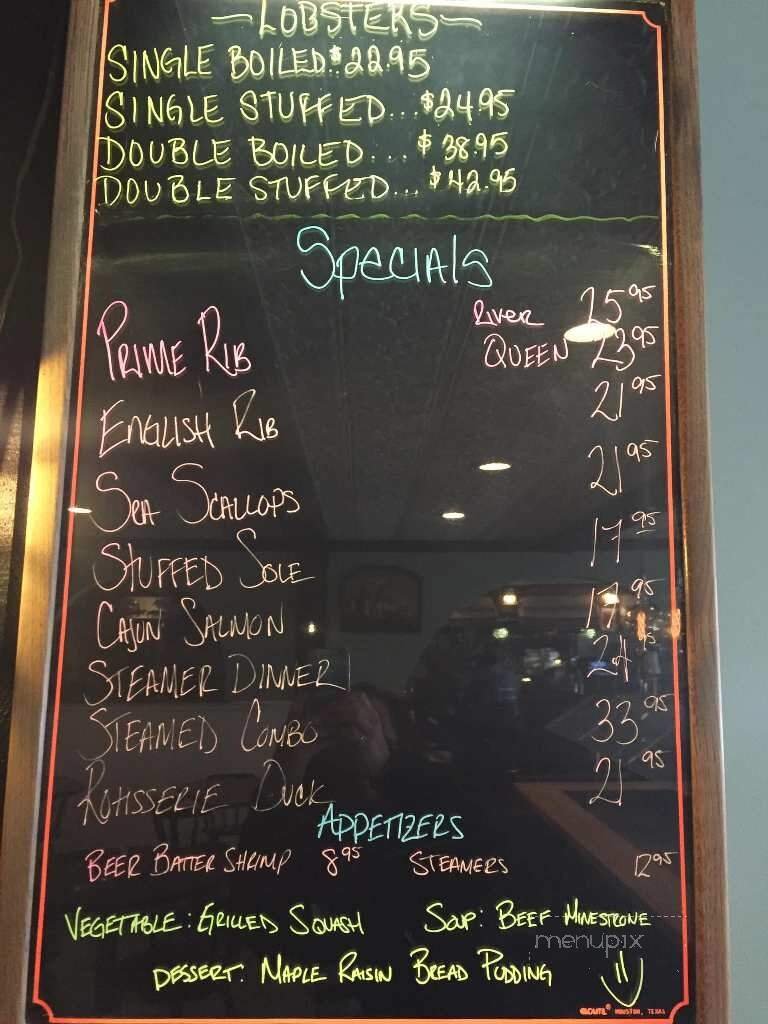 LOBSTERS
SINGLE BOILED $22.95
SINGLE STUFFED... $24.95
DOUBLE BOILED... $38.95
DOUBLE STUFFED... $42.95
Specials
PRIME RIB RIVER 25 95
QUEEN 23 95
ENGLISH RIB 21 95
SEA SCALLOPS 21 95
STUFFED SOLE 17 95
CAJUN SALMON 17 95
STEAMER DINNER 24 95
STEAMED COMBO 33 95
ROTISSERIE DUCK 21 95
APPETIZERS
BEER BATTER SHRIMP 8 95 STEAMERS 12 95
VEGETABLE: GRILLED SQUASH SOUP: BEEF MINESTRONE
menupix
DESSERT: MAPLE RAISIN BREAD PUDDING
HOUSTON, TEXAS